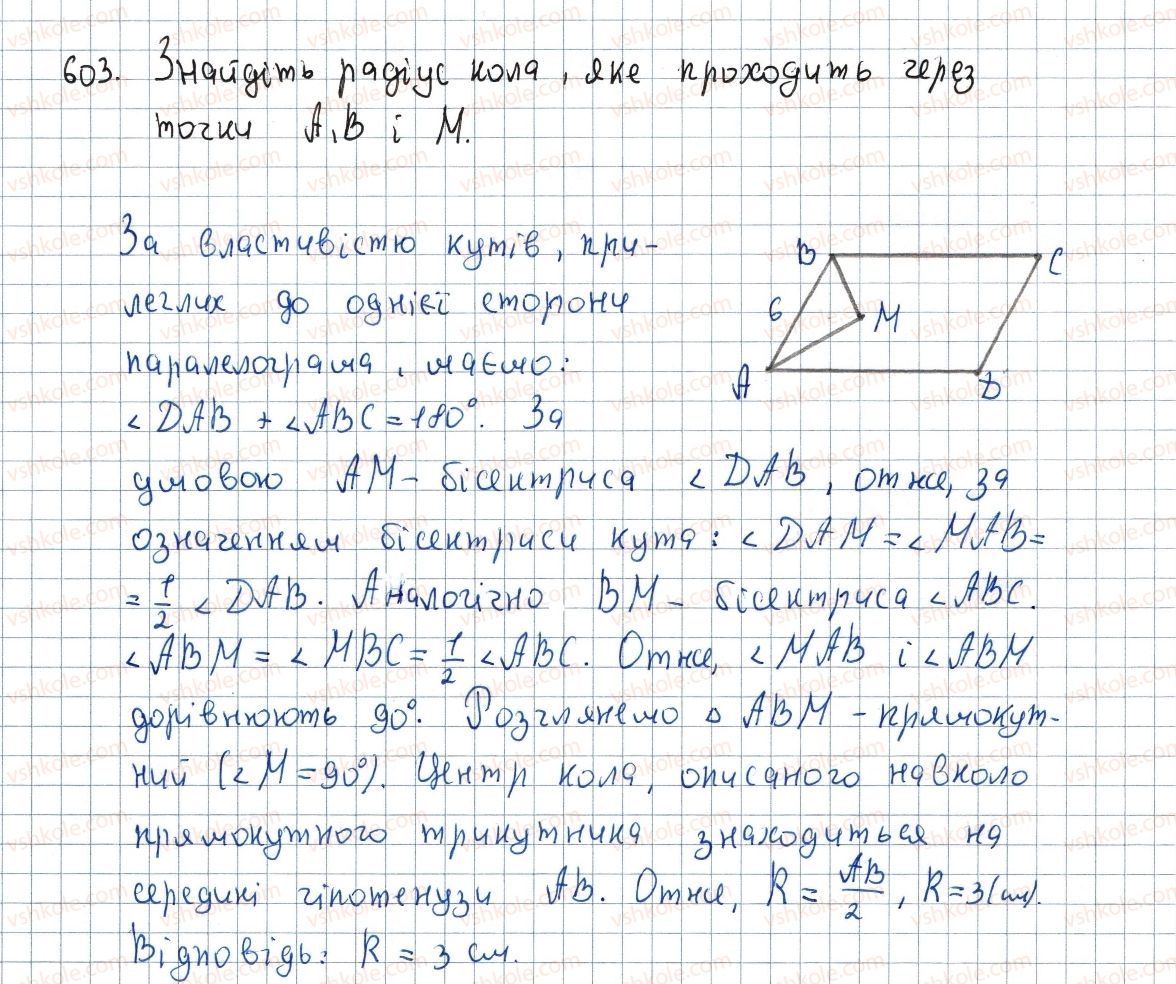 603. Знайдіть радіус кола, яке проходить через
точки A, B і M.
За властивістю кутів, при-
леглих до однієї сторони
паралелограма, маємо:
∠DAB + ∠ABC = 180°. За
умовою AM - бісектриса ∠DAB, отже, за
означенням бісектриси кута: ∠DAM = ∠MAB =
= 1/2 ∠DAB. Аналогічно BM - бісектриса ∠ABC.
∠ABM = ∠MBC = 1/2 ∠ABC. Отже, ∠MAB і ∠ABM
дорівнюють 90°. Розглянемо △ABM - прямокут-
ний (∠M = 90°). Центр кола, описаного навколо
прямокутного трикутника знаходиться на
середині гіпотенузи AB. Отже, R = AB/2, R = 3 (см).
Відповідь: R = 3 см.
B
C
6
M
A
D
vshkole.com